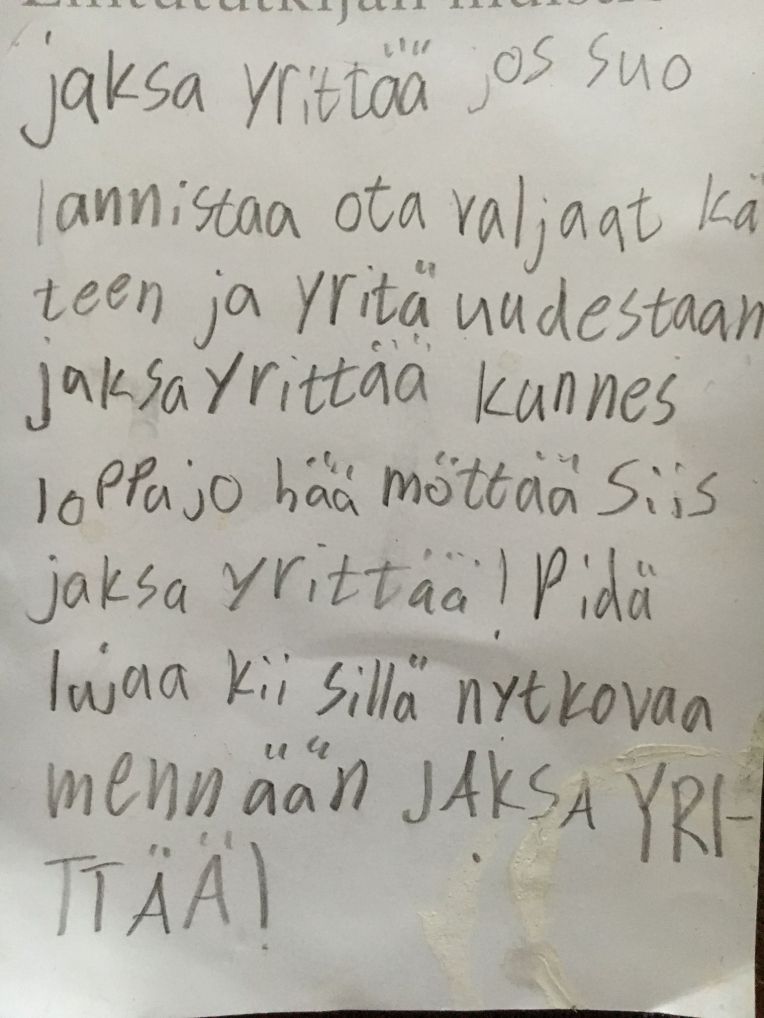 jaksa yrittää jos suo
lannistaa ota valjaat kä
teen ja yritä uudestaan
jaksa yrittää kunnes
loppajo hää möttää siis
jaksa yrittää! Pidä
lujaa kii sillä nytkovaa
mennään JAKSA YRI-
TTÄÄ!